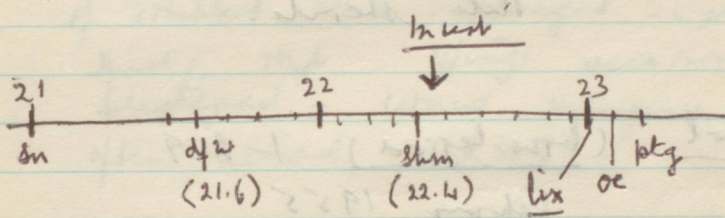 21 22 23
sn dfw shm lix oe ptg
(21.6) (22.4)